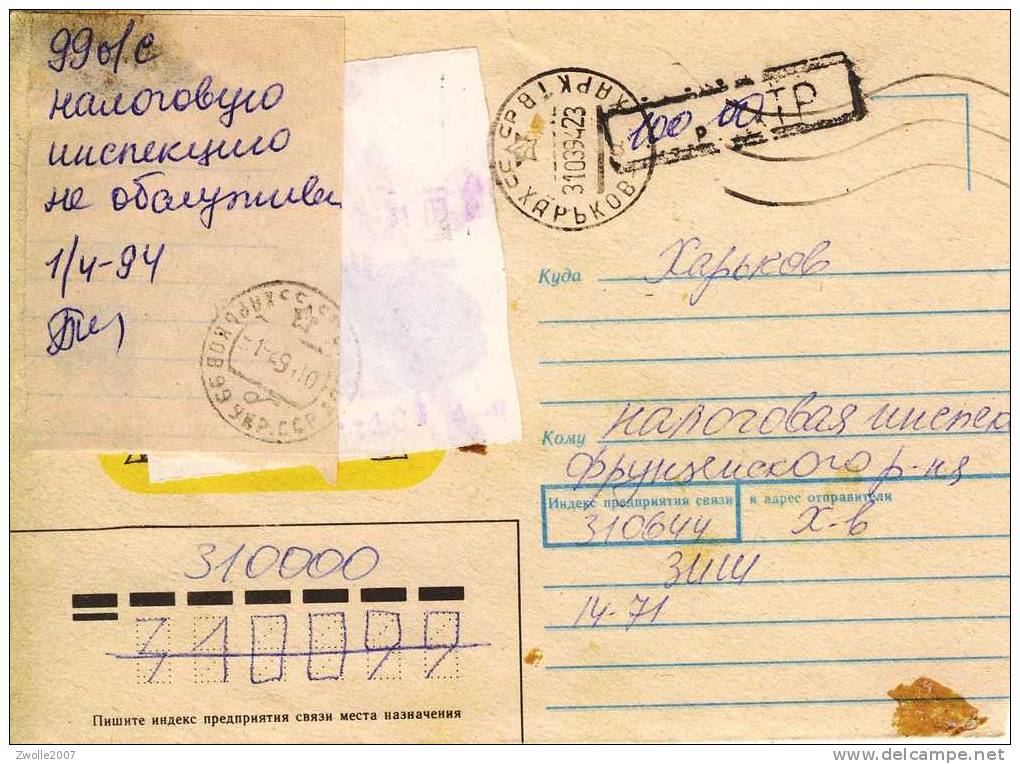 99 о/с
налоговую
инспекцию
не обслужива
1/4-94
ХАРЬКОВ
31039423
100 00
р
ТР
ХАРЬКОВ 99 УКР.ССР
Куда Харьков
Кому налоговая инспек
Фрунзенского р-на
Индекс предприятия связи и адрес отправителя
310644 Х-в
ЗИШ
14-71
310000
310099
Пишите индекс предприятия связи места назначения
Zwolle2007
www.delcampe.net